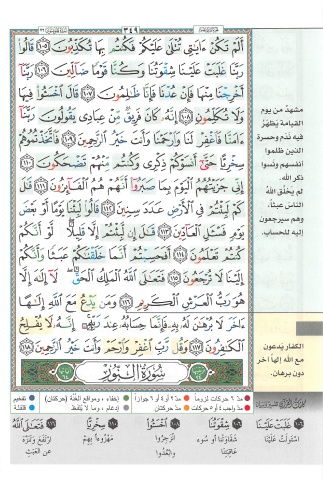 ٣٤٩
أَلَمْ تَكُنْ ءَايَٰتِى تُتْلَىٰ عَلَيْكُمْ فَكُنتُم بِهَا تُكَذِّبُونَ ١٠٥ قَالُوا۟
رَبَّنَا غَلَبَتْ عَلَيْنَا شِقْوَتُنَا وَكُنَّا قَوْمًا ضَآلِّينَ ١٠٦ رَبَّنَآ
أَخْرِجْنَا مِنْهَا فَإِنْ عُدْنَا فَإِنَّا ظَٰلِمُونَ ١٠٧ قَالَ ٱخْسَـُٔوا۟ فِيهَا
وَلَا تُكَلِّمُونِ ١٠٨ إِنَّهُۥ كَانَ فَرِيقٌ مِّنْ عِبَادِى يَقُولُونَ رَبَّنَآ
ءَامَنَّا فَٱغْفِرْ لَنَا وَٱرْحَمْنَا وَأَنتَ خَيْرُ ٱلرَّٰحِمِينَ ١٠٩ فَٱتَّخَذْتُمُوهُمْ
سِخْرِيًّا حَتَّىٰٓ أَنسَوْكُمْ ذِكْرِى وَكُنتُم مِّنْهُمْ تَضْحَكُونَ ١١٠
إِنِّى جَزَيْتُهُمُ ٱلْيَوْمَ بِمَا صَبَرُوٓا۟ أَنَّهُمْ هُمُ ٱلْفَآئِزُونَ ١١١ قَٰلَ
كَمْ لَبِثْتُمْ فِى ٱلْأَرْضِ عَدَدَ سِنِينَ ١١٢ قَالُوا۟ لَبِثْنَا يَوْمًا أَوْ بَعْضَ
يَوْمٍ فَسْـَٔلِ ٱلْعَآدِّينَ ١١٣ قَٰلَ إِن لَّبِثْتُمْ إِلَّا قَلِيلًا لَّوْ أَنَّكُمْ
كُنتُمْ تَعْلَمُونَ ١١٤ أَفَحَسِبْتُمْ أَنَّمَا خَلَقْنَٰكُمْ عَبَثًا وَأَنَّكُمْ
إِلَيْنَا لَا تُرْجَعُونَ ١١٥ فَتَعَٰلَى ٱللَّهُ ٱلْمَلِكُ ٱلْحَقُّ لَآ إِلَٰهَ إِلَّا
هُوَ رَبُّ ٱلْعَرْشِ ٱلْكَرِيمِ ١١٦ وَمَن يَدْعُ مَعَ ٱللَّهِ إِلَٰهًا
ءَاخَرَ لَا بُرْهَٰنَ لَهُۥ بِهِۦ فَإِنَّمَا حِسَابُهُۥ عِندَ رَبِّهِۦٓ إِنَّهُۥ لَا يُفْلِحُ
ٱلْكَٰفِرُونَ ١١٧ وَقُل رَّبِّ ٱغْفِرْ وَٱرْحَمْ وَأَنتَ خَيْرُ ٱلرَّٰحِمِينَ ١١٨
سُورَةُ ٱلنُّورِ
مشهدٌ من يوم
القيامة يَظْهَرُ
فيه ندم وحسرة
الذين ظلموا
أنفسهم ونَسوا
ذكر الله.
لم يَخلُق الله
الناسَ عبثاً،
وهم سيرجعون
إليه للحساب.
الكفار يَدعون
مع الله إلهاً آخر
دون برهان.
مدّ ٦ حركات لزوماً
مدّ ٢ أو ٤ أو ٦ جوازاً
إخفاء، ومواقع الغُنَّة (حركتان)
تفخيم
مدّ واجب ٤ أو ٥ حركات
مدّ حركتان
إدغام، وما لا يُلفَظ
قلقلة
غَلَبَتْ عَلَيْنَا
استَولَتْ عَلَيْنَا
شِقْوَتُنَا
شَقَاوَتُنَا أَو سُوء
عَاقِبَتِنَا
اخْسَئُوا
انْزَجِرُوا
وابْعُدُوا
سِخْرِيًّا
مَهْزُوءاً بِهِمْ
فَتَعَالَى اللَّهُ
ارْتَفَعَ وَتَنَزَّهَ
عن العَبَثِ